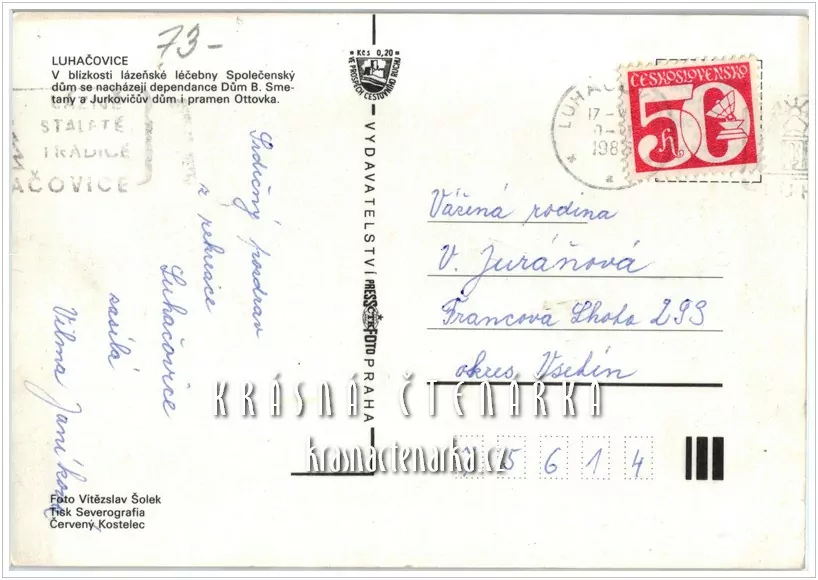 73-
LUHAČOVICE
V blízkosti lázeňské léčebny Společenský
dům se nacházejí dependance Dům B. Sme-
tany a Jurkovičův dům i pramen Ottovka.
STALETÉ
TRADICE
AČOVICE
Kčs 0,20
VE PROSPĚCH CESTOVNÍHO RUCHU
LUHAČ
17
198
ČESKOSLOVENSKO
50
h
Srdečný pozdrav
z rekreace
Luhačovice
zasílá
Vilma Janíková
VYDAVATELSTVÍ PRESSFOTO PRAHA
ČTK
Vážená rodina
V. Juráňová
Francova Lhota 293
okres Vsetín
KRÁSNÁ ČTENÁRKA
krasnactenarka.cz
7 5 6 1 4
Foto Vítězslav Šolek
Tisk Severografia
Červený Kostelec